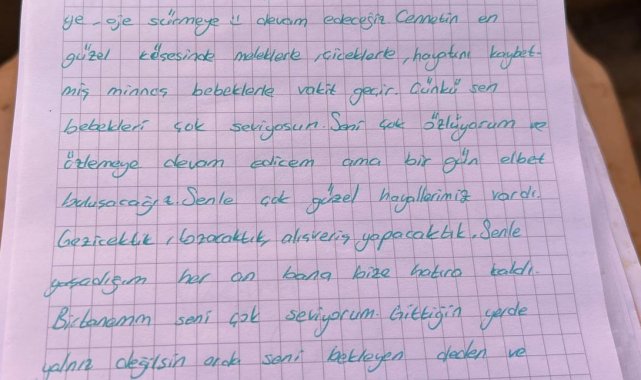 ye - oje sürmeye " devam edeceğiz Cennetin en
güzel köşesinde meleklerle, çiceklerle, hayatını kaybet-
miş minnoş bebeklerle vakit geçir. Çünkü sen
bebekleri çok seviyosun. Seni çok özlüyorum ve
özlemeye devam edicem ama bir gün elbet
buluşacağız. Senle çok güzel hayallerimiz vardı.
Gezicektik, tozacaktık, alışveriş yapacaktık. Senle
yaşadığım her an bana bize hatıra kaldı.
Birtanemm seni çok seviyorum. Gittiğin yerde
yalnız değilsin orda seni bekleyen deden ve